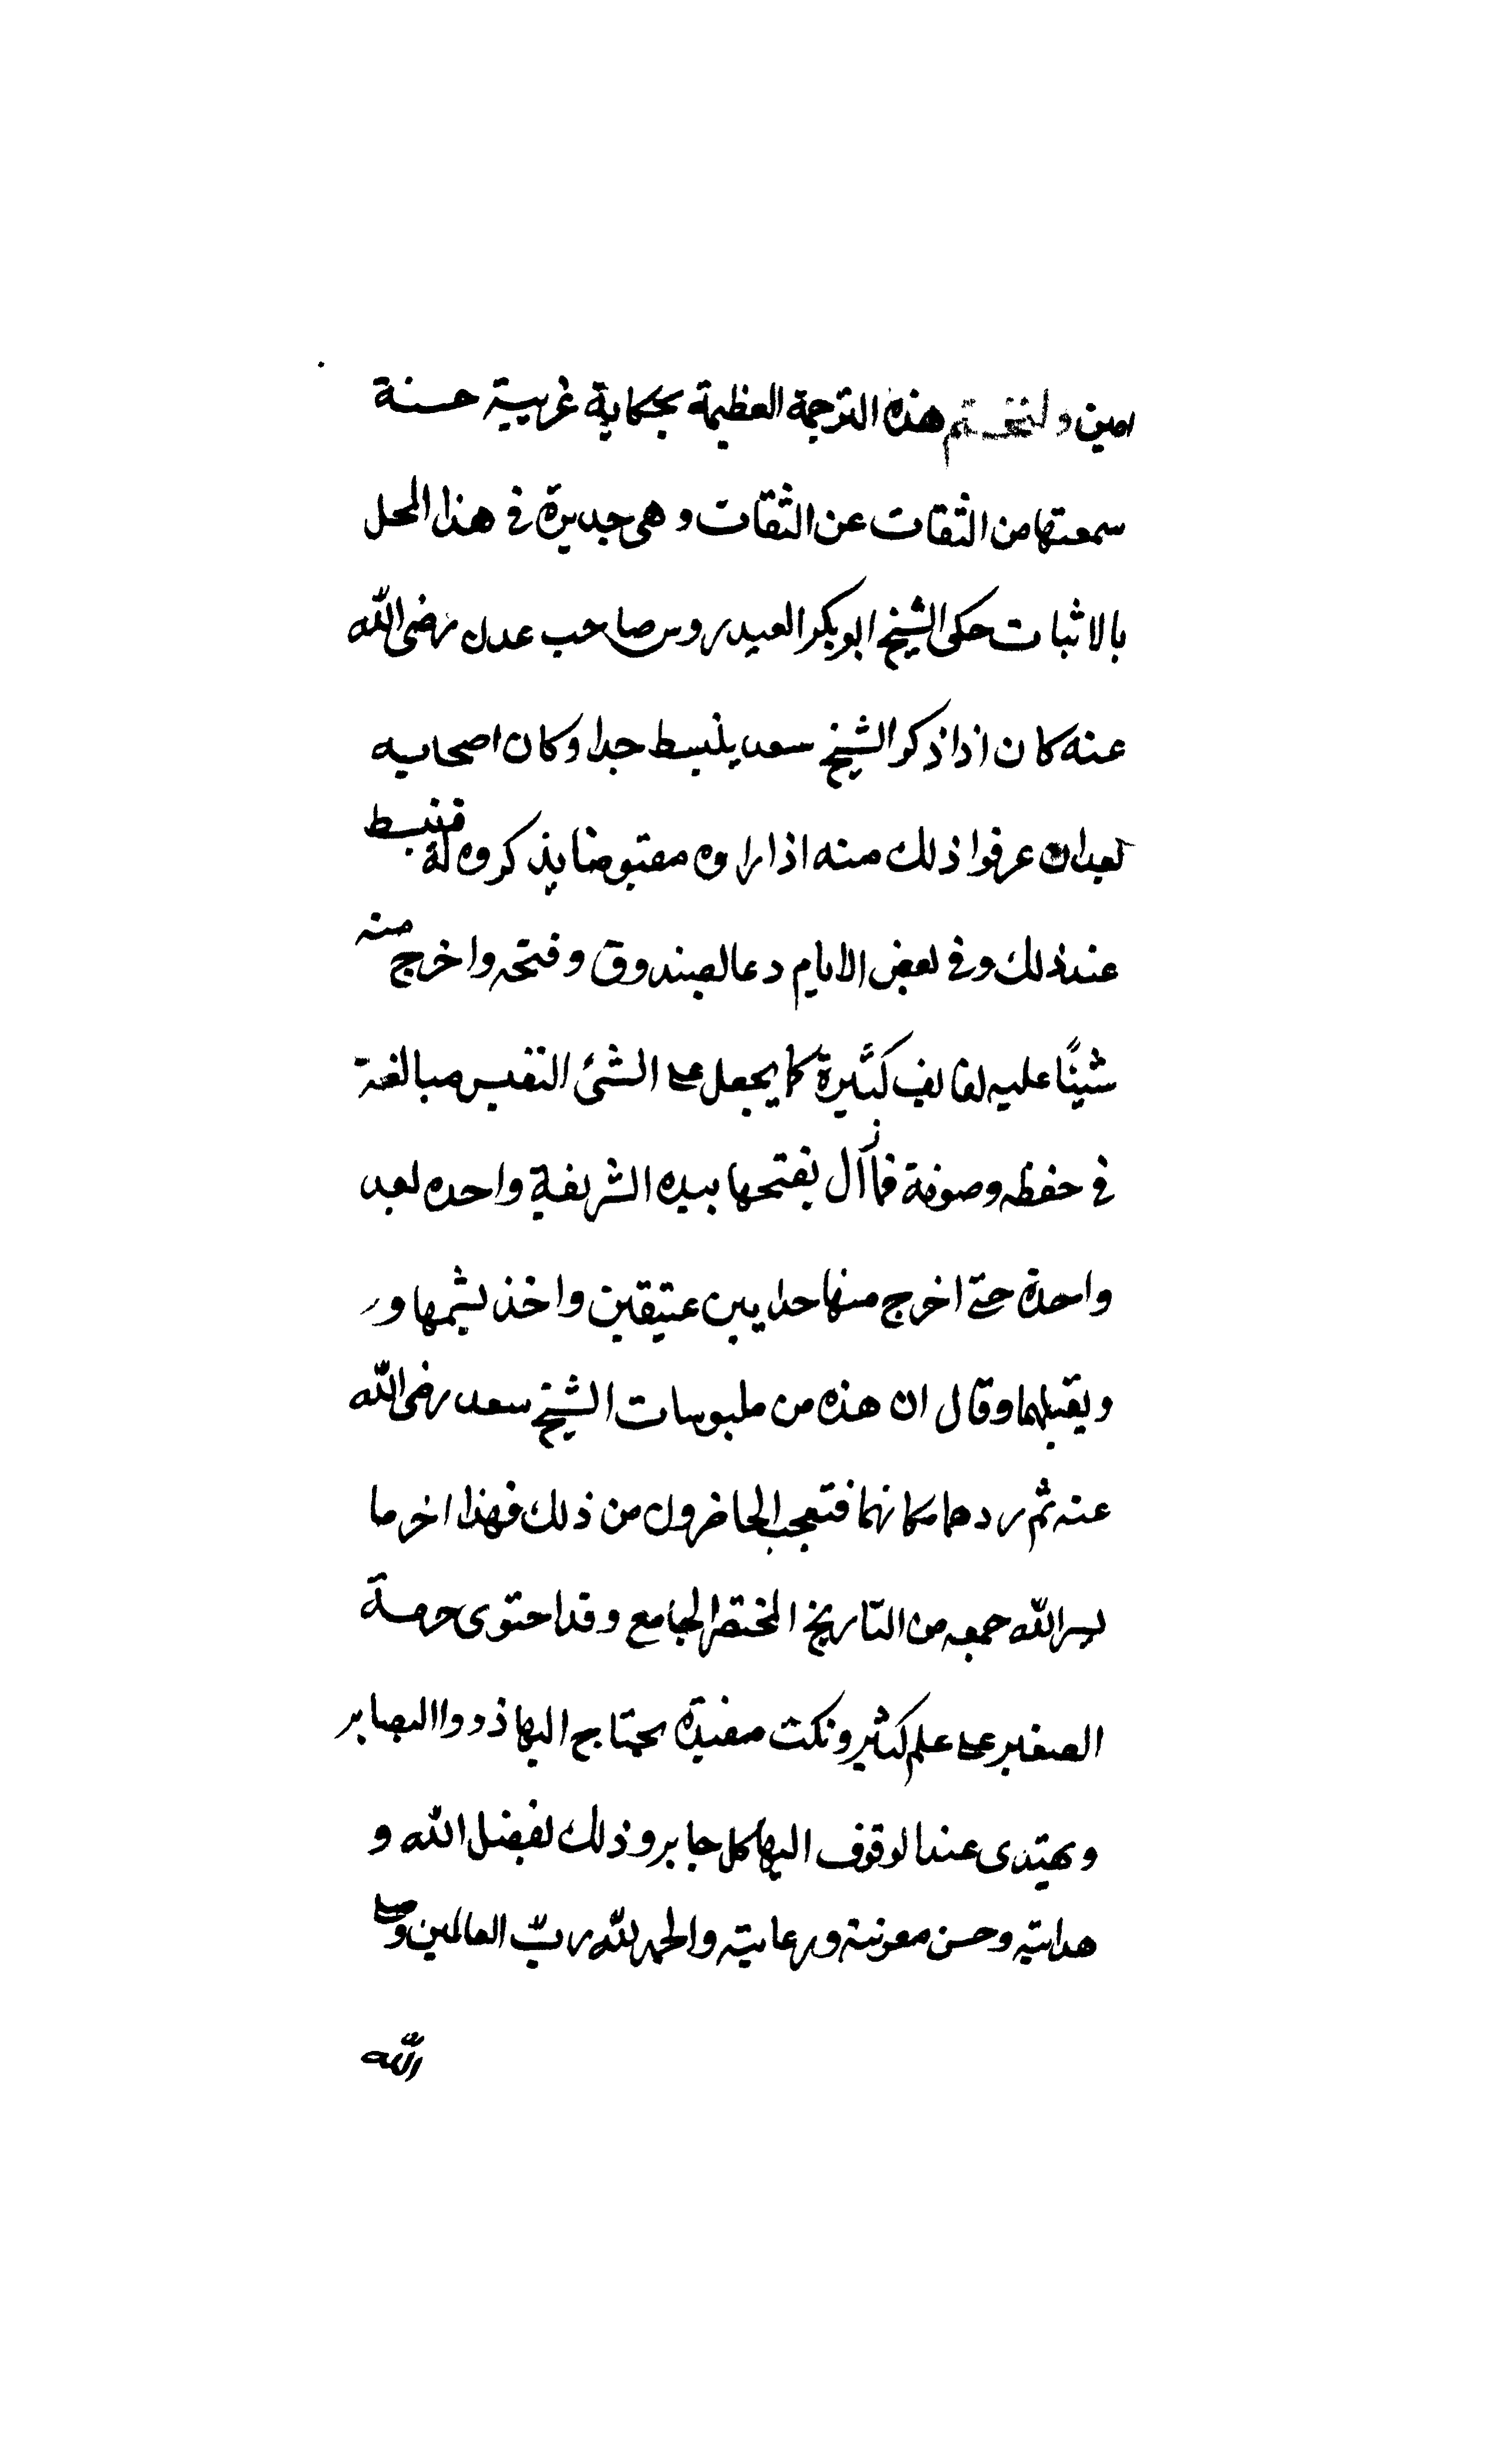 امين ولنختم هذه الترجمة العظيمة بحكاية غريبة حسنة
سمعتها من الثقات عن الثقات وهى جديرة في هذا المحل
بالاثبات حكى الشيخ ابو بكر العيدروس صاحب عدن رضى الله
عنه كان اذا ذكر الشيخ سعد ينبسط جدا وكان اصحابه
بعد ان عرفوا ذلك منه اذا راوه مقبوضا يذكروه له فينبسط
عند ذلك وفي بعض الايام دعا لصندوق وفتحه واخرج منه
شيئًا عليه لفايف كثيرة كما يجعل على الشئ النفيس مبالغة
في حفظه وصونه فما زال يفتحها بيده الشريفة واحده بعد
واحدة حتى اخرج منها حدايين عتيقين واخذ يشمها و
ويقبلهما وقال ان هذه من ملبوسات الشيخ سعد رضى الله
عنه ثم ردهما مكانهما فتعجب الحاضرون من ذلك فهذا اخر ما
يسر الله جمعه من التاريخ المختصر الجامع وقد احتوى جرمة
الصغير على علم كثير ونكت مفيدة يحتاج اليها ذووا البصاير
ويهتدى عند الوقوف اليها كل حاير وذلك بفضل الله و
هدايته وحسن معونته ورعايته والحمد لله ربّ العالمين وصلى
الله